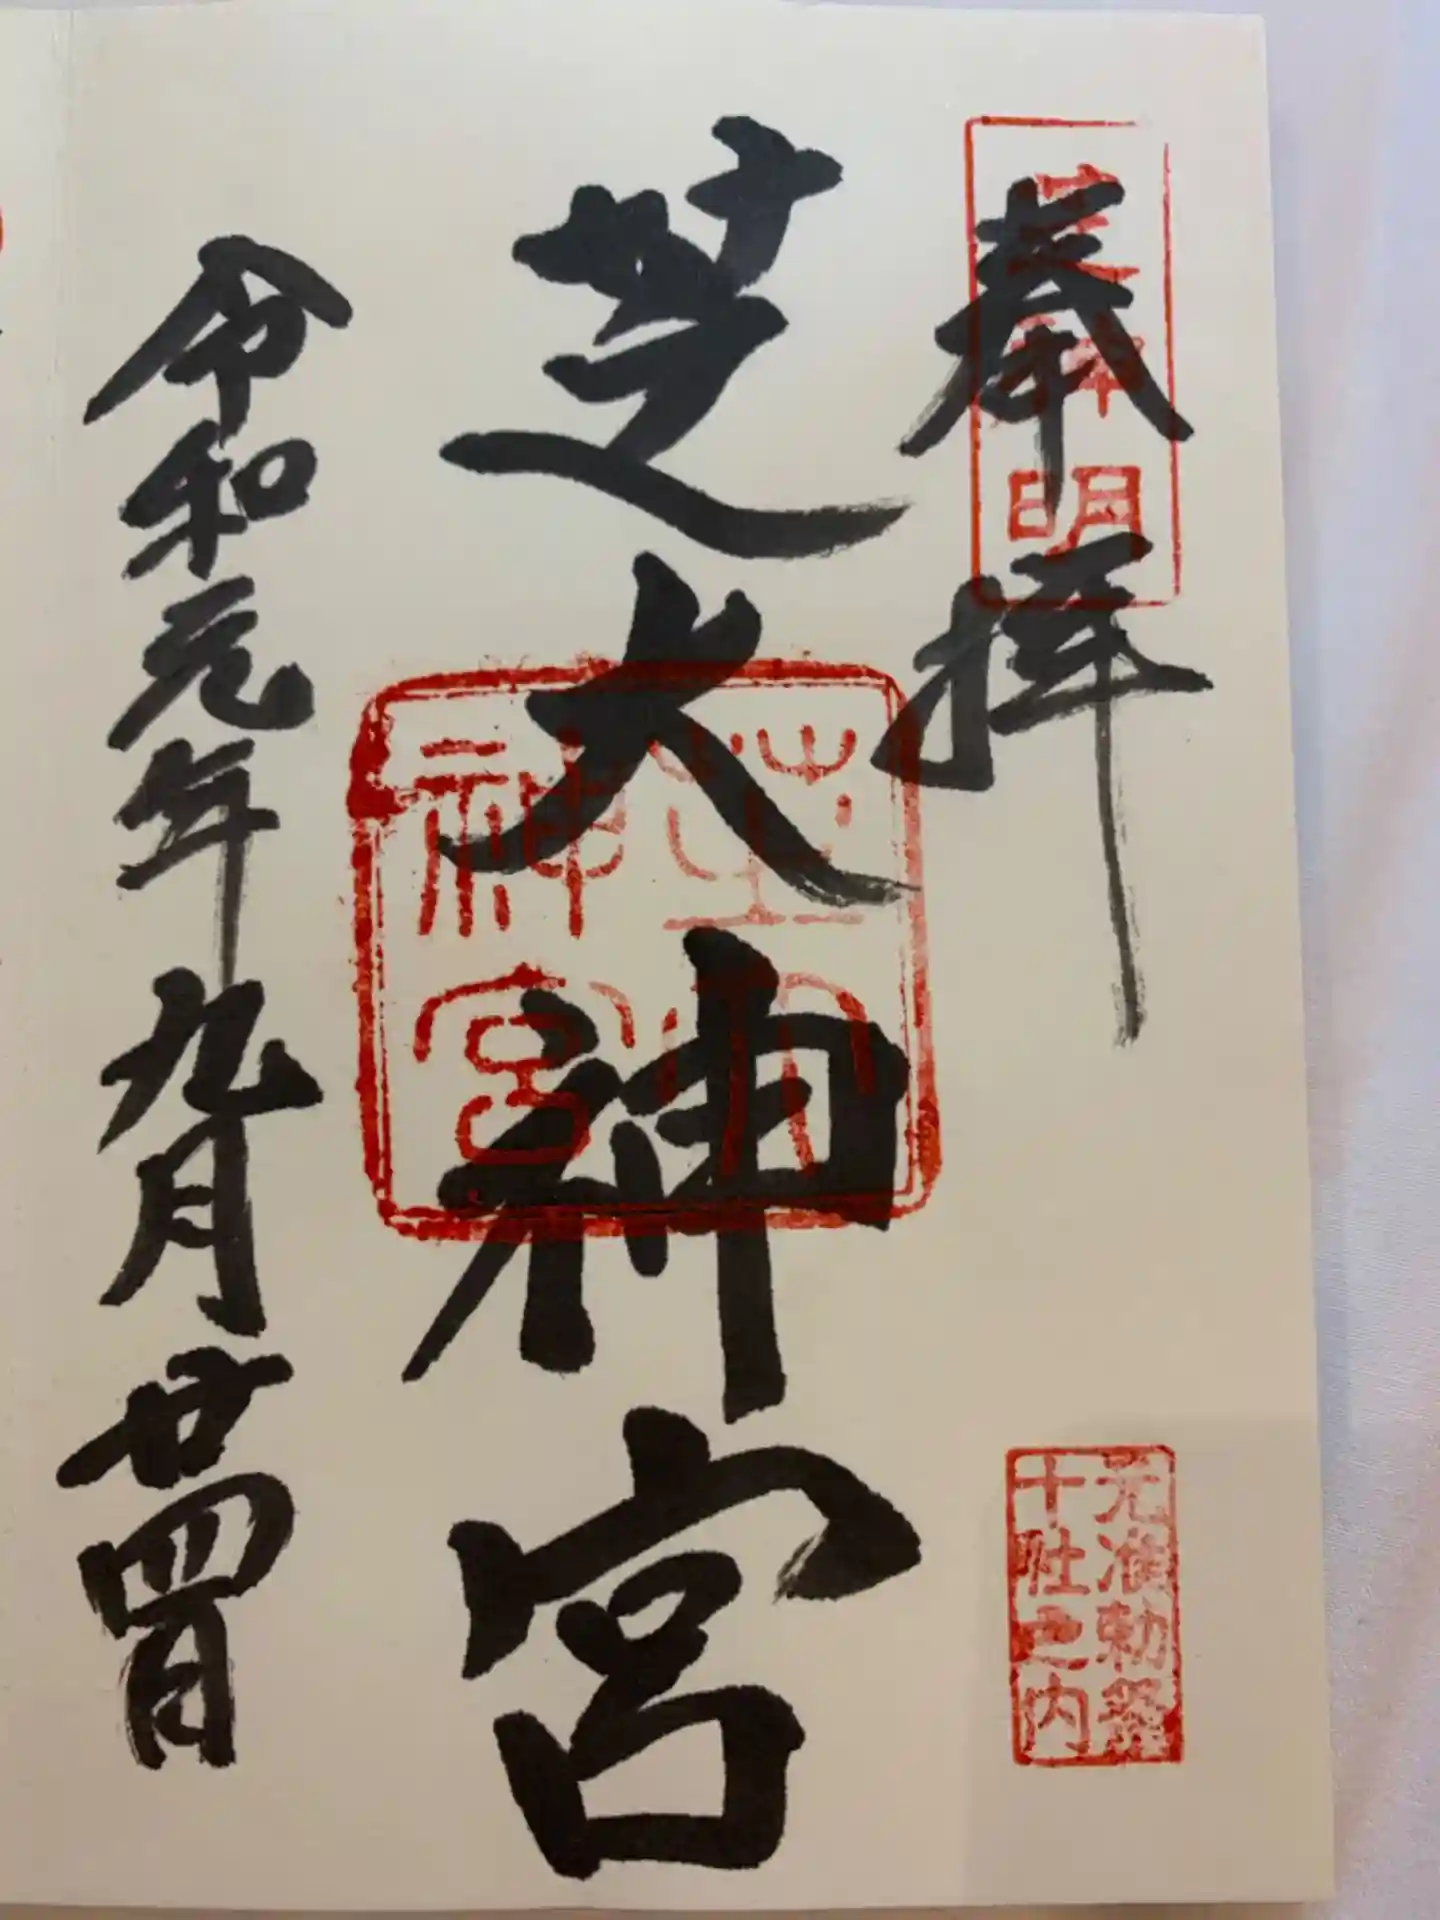 芝神明
奉拝
元准勅祭
十社之内
芝大神宮
芝大
神宮
令和元年九月廿四日